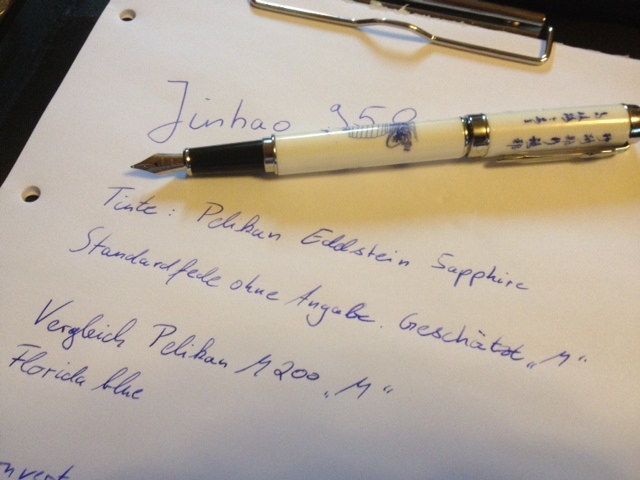 Jinhao 950
Tinte: Pelikan Edelstein Sapphire
Standardfeder ohne Angabe. Geschätzt „M“
Vergleich Pelikan M200 „M“
Florida blue